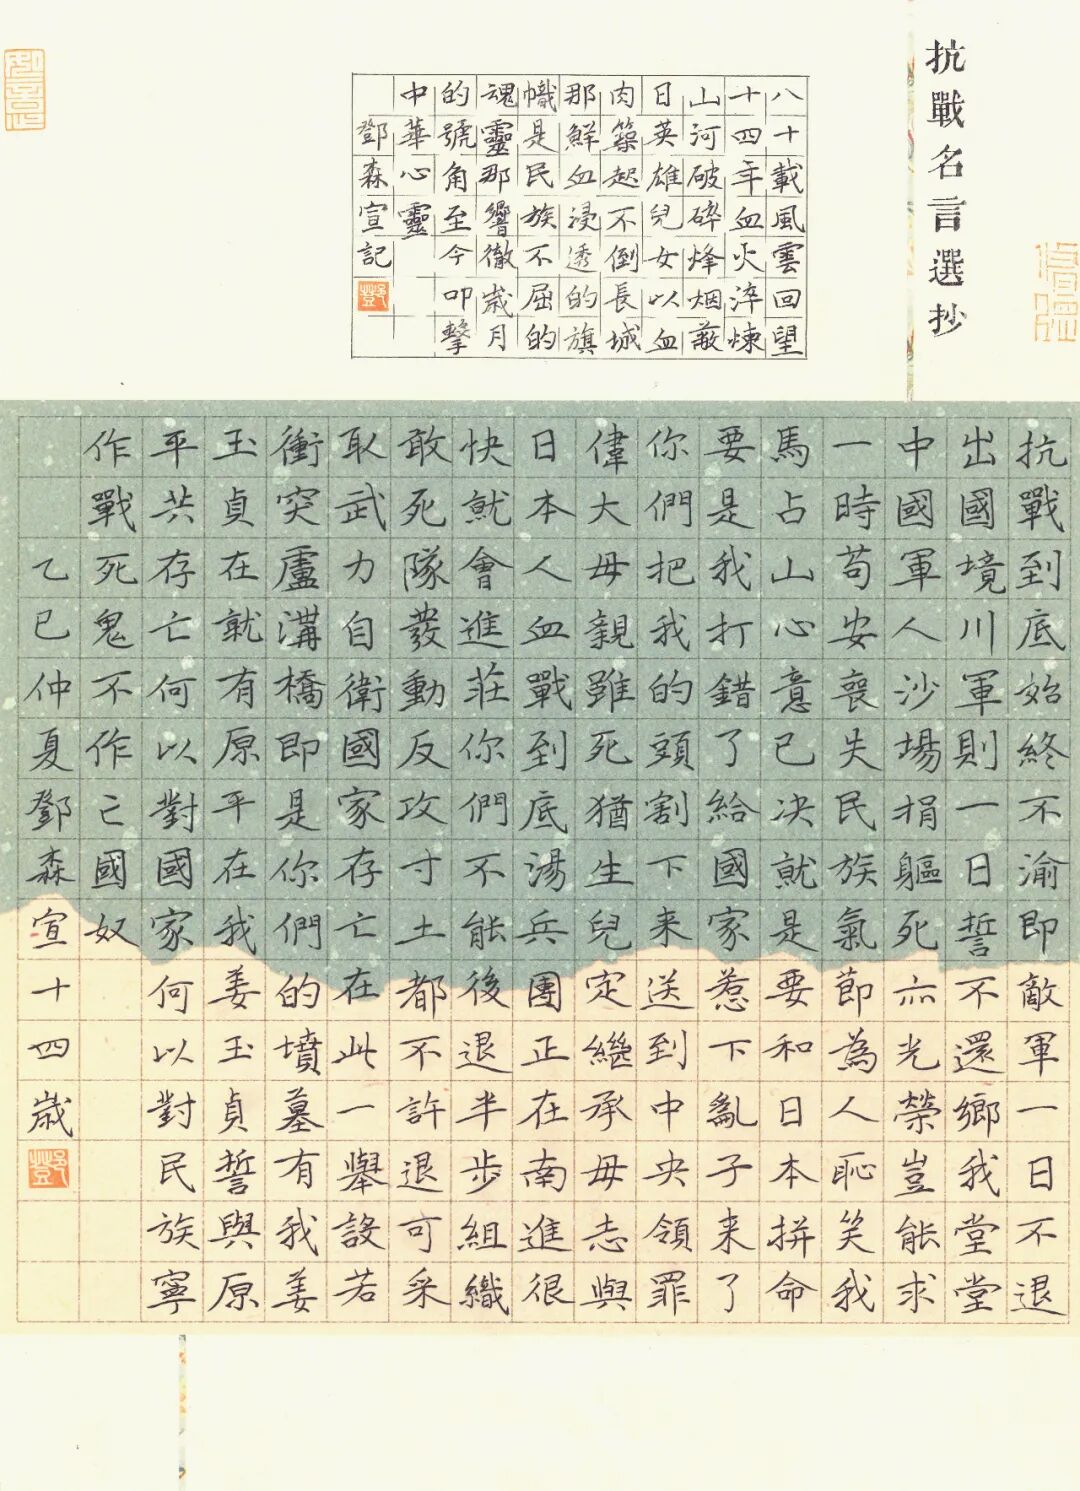 抗戰名言選抄
八十載風雲回望
十四年血火淬煉
山河破碎烽烟蔽
日英雄兒女以血
肉築起不倒長城
那鮮血浸透的旗
幟是民族不屈的
魂靈那響徹歲月
的號角至今叩擊
中華心靈
鄧森宣記
鄧
抗戰到底始終不渝即敵軍一日不退
出國境川軍則一日誓不還鄉我堂堂
中國軍人沙場捐軀死亦光榮豈能求
一時苟安喪失民族氣節為人恥笑我
馬占山心意已决就是要和日本拼命
要是我打錯了給國家惹下亂子来了
你們把我的頭割下来送到中央領罪
偉大母親雖死猶生兒定繼承母志與
日本人血戰到底湯兵團正在南進很
快就會進莊你們不能後退半步組織
敢死隊發動反攻寸土都不許退可采
取武力自衛國家存亡在此一舉設若
衝突盧溝橋即是你們的墳墓有我姜
玉貞在就有原平在我姜玉貞誓與原
平共存亡何以對國家何以對民族寧
作戰死鬼不作亡國奴
乙巳仲夏鄧森宣十四歲
鄧